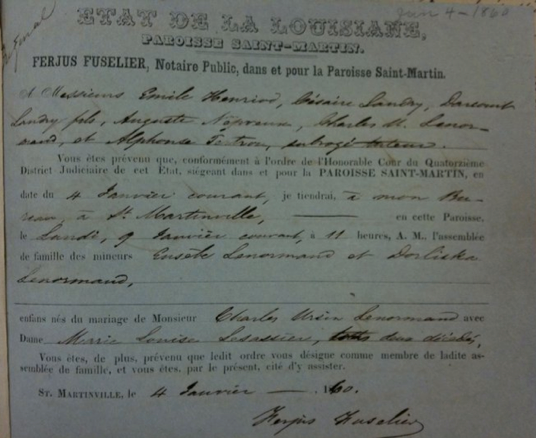 Jan 4-1860
ETAT DE LA LOUISIANE,
PAROISSE SAINT-MARTIN.
FERJUS FUSELIER, Notaire Public, dans et pour la Paroisse Saint-Martin.
A Messieurs Emile Henriod, Césaire Landry, Darcourt
Landry fils, Auguste Charles M. Lenor-
mand, et Alphonse subrogé tuteur.
Vous êtes prévenu que, conformément à l'ordre de l'Honorable Cour du Quatorzième
District Judiciaire de cet Etat, siégeant dans et pour la PAROISSE SAINT-MARTIN, en
date du 4 Janvier courant, je tiendrai, à mon Bu-
reau, à St Martinville, en cette Paroisse,
le Lundi, 9 Janvier courant, à 11 heures, A. M., l'assemblée
de famille des mineurs Eusèbe Lenormand et Dorliska
Lenormand,
enfans nés du mariage de Monsieur Charles Ursin Lenormand avec
Dame Louise tous deux décédés,
Vous êtes, de plus, prévenu que ledit ordre vous désigne comme membre de ladite as-
semblée de famille, et vous êtes, par le présent, cité d'y assister.
ST. MARTINVILLE, le 4 Janvier 1860.
Ferjus Fuselier